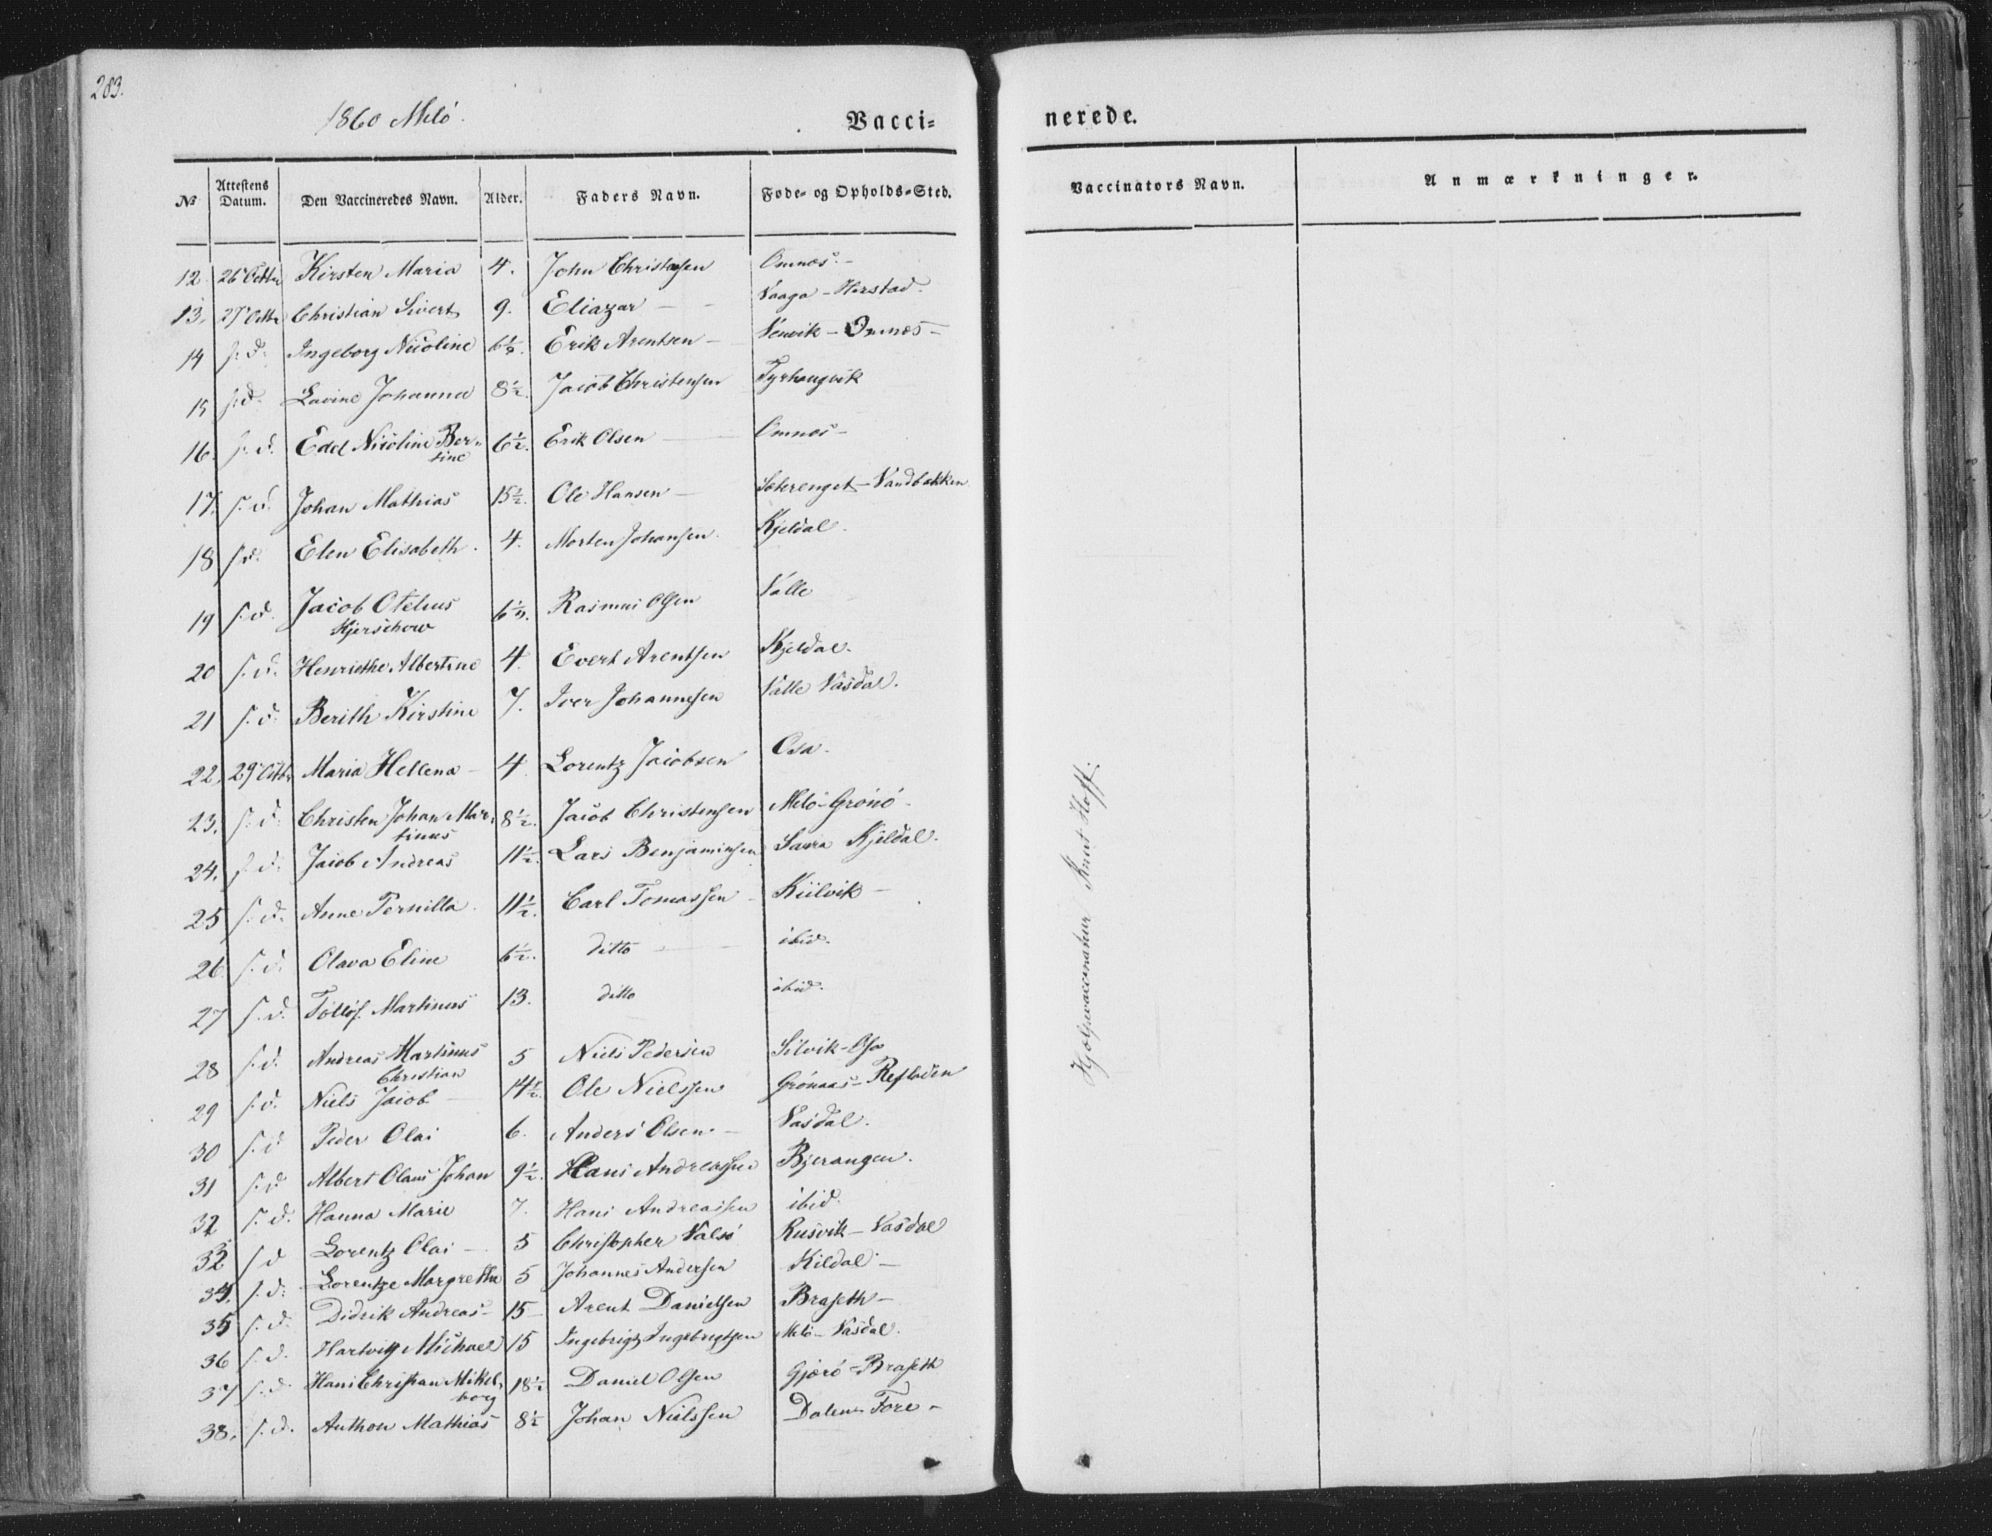 283.
1860 Melö.
Vacci=
nerede.
№ Attestens Datum. Den Vaccineredes Navn. Alder. Faders Navn. Føde- og Opholds-Sted. Vaccinators Navn. Anmærkninger.
12 26 Octbr Kirsten Maria 4. John Christensen Omnes. -
13. 27 Octbr Christian Sivert 9. Eliazar - - Vaaga - Herstad.
14 s. d. Ingeborg Nicoline 6½. Erik Arentsen - Venvik - Omnes -
15 s. d. Lavine Johanna 8½. Jacob Christensen Tyrhougvik
16. s. d. Edel Nicoline Ber-
tine 6½. Erik Olsen - Omnes -
17. s. d. Johan Mathias 15½. Ole Hansen - Sæterenget - Vandbakken
18 s. d. Elen Elisabeth. 4. Morten Johansen. Kjeldal.
19 s. d. Jacob Otelius
Hjerschow 6½. Rasmus Olsen Valle
20 s. d. Henriethe Albertine 4. Evert Arentsen Kjeldal.
21 s. d. Berith Kirstine 7. Iver Johannesen Valle Vasdal.
22. 29 Octbr Maria Hellena - 4 Lorentz Jacobsen Osa.
23. s. d. Christen Johan Mar-
tinus 8½. Jacob Christensen Melö - Grönö -
24. s. d. Jacob Andreas 11½. Lars Benjaminsen Saura Kjeldal.
25 s. d. Anne Pernilla. 11½. Carl Tomassen - Kiilvik -
26 s. d. Olava Eline 6½. ditto - ibid.
27 s. d. Tollöf. Martinus 13. ditto ibid.
28 s. d. Andreas Martinus
Christian 5 Niels Pedersen Silvik - Osa
29 s. d. Niels Jacob - 14½. Ole Nielssen Grönaas - Refladen
30 s. d Peder Olai 6. Anders Olsen - Vasdal.
31 s. d Albert Olaus Johan 9½. Hans Andreassen Bjerangen.
32 s. d. Hanna Marie 7. Hans Andreassen ibid.
33 s d Lorentz Olai - 5 Christopher Valsö Rusvik - Vasdal
34. s. d. Lorentze Margrethe 5 Johannes Andersen Kildal -
35 s. d. Didrik Andreas - 15 - Arent Danielsen Braseth -
36 s. d. Hartvig Michael 15 Ingebrigt Ingebrigtsen Melö - Vasdal.
37 s. d. Hans Christian Mikel-
borg 18½ Daniel Olsen Gjærö - Braseth
38. s. d. Anthon Mathias 8½ Johan Nielssen Dalen - Fore -
Hjelpevaccinateur Knut Hoff.